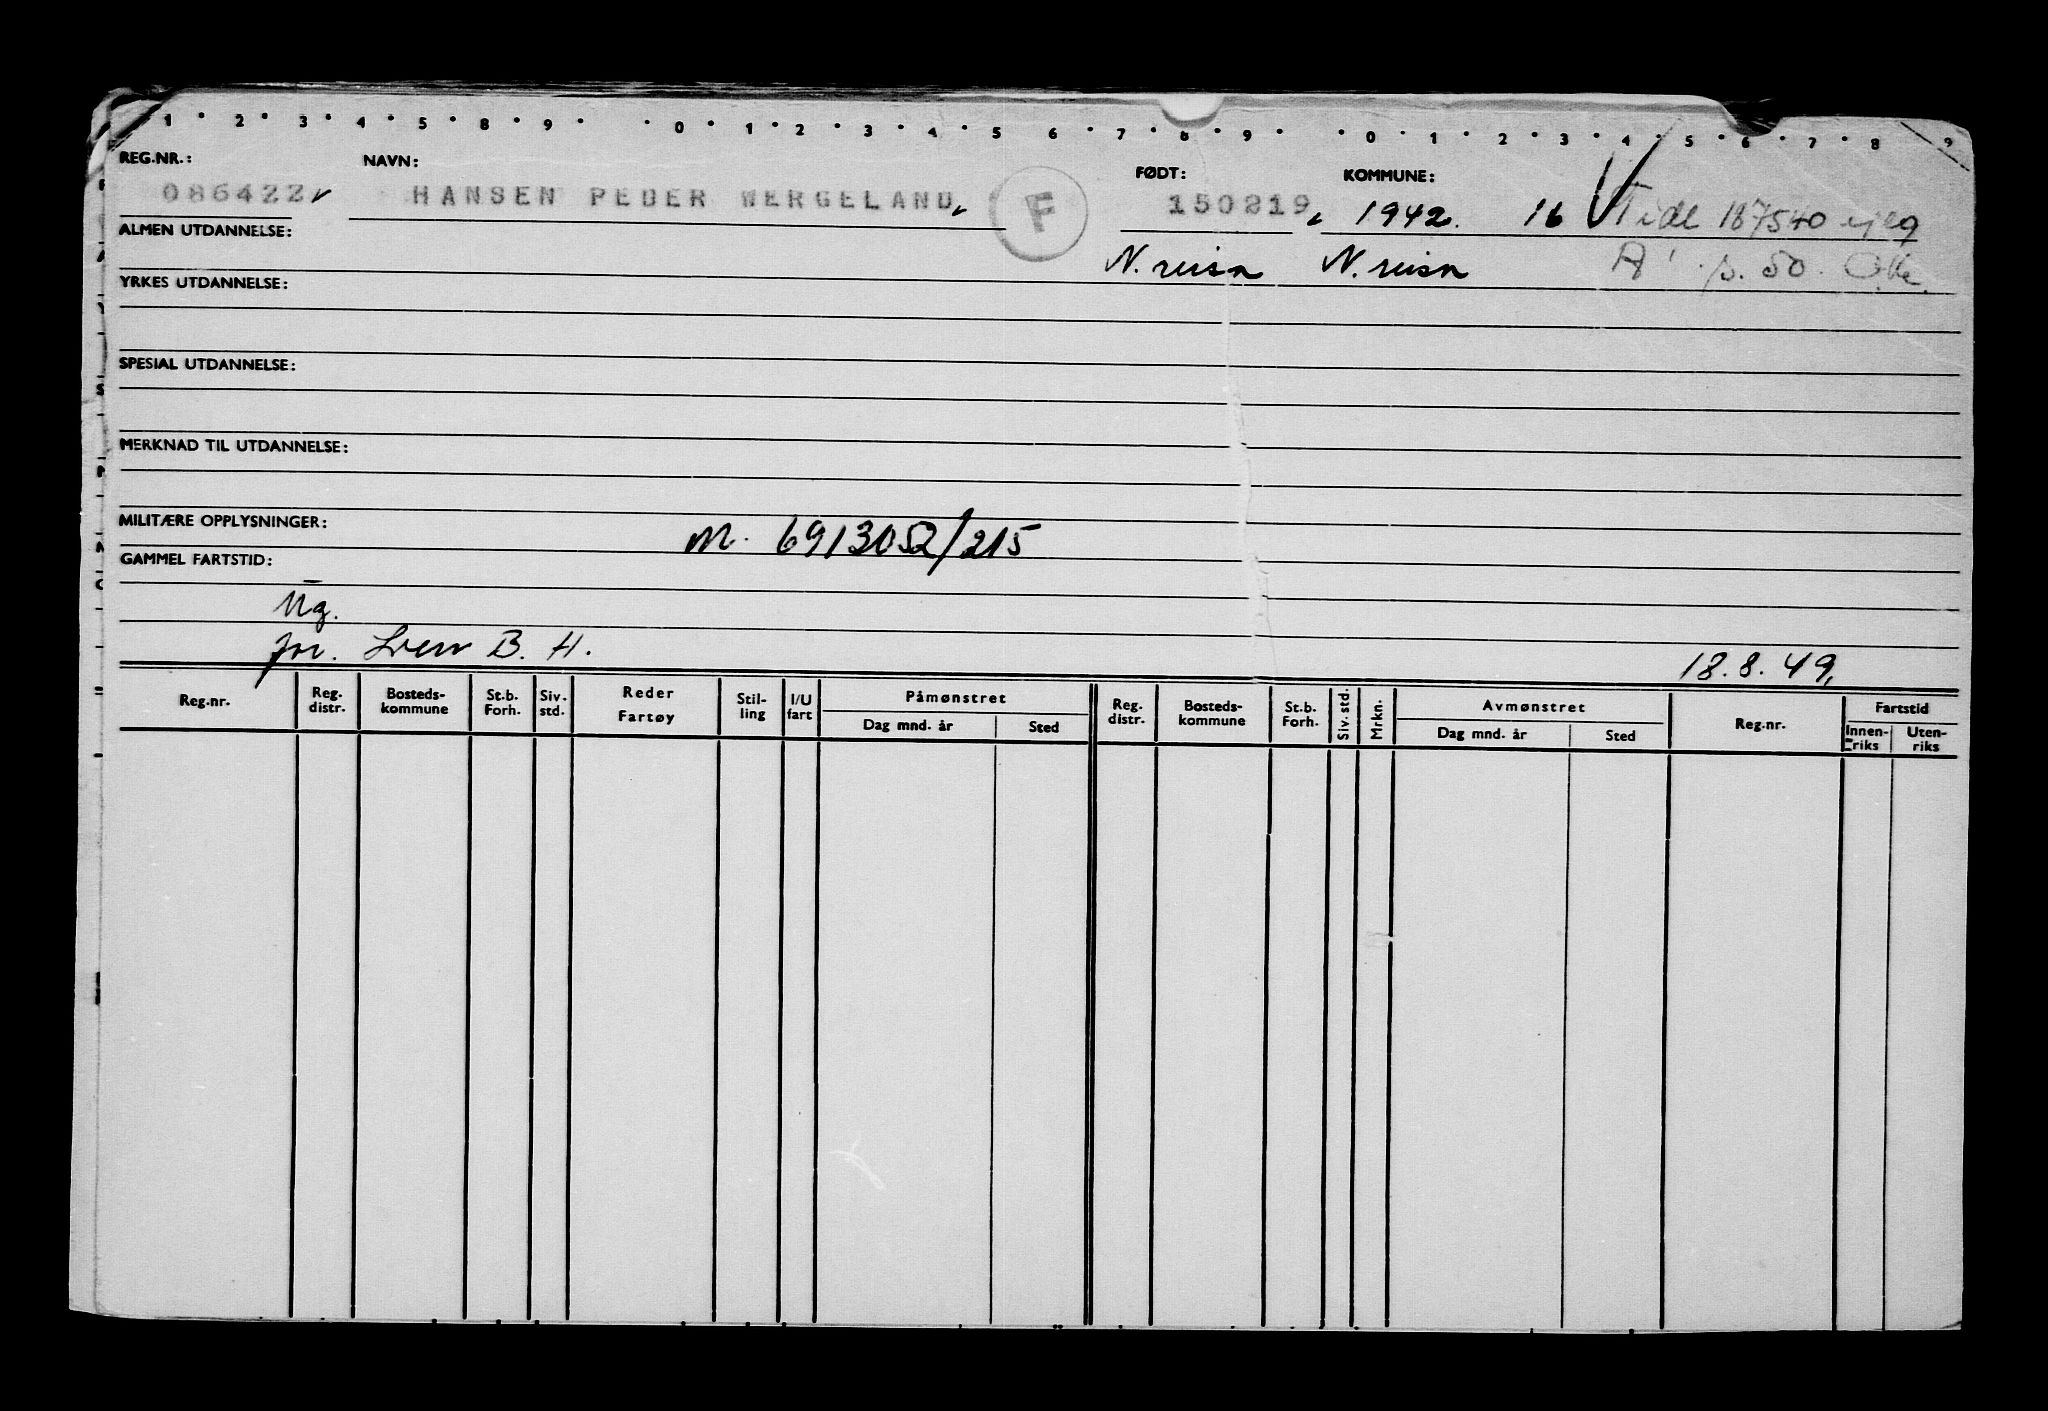 1 • 2 • 3 • 4 • 5 • 8 • 9 • • 0 • 1 • 2 • 3 • 4 • 5 6 • 7 • 8 • 9 • • 0 • 1 • 2 • 3 • 4 • 5 • 6 • 7 • 8 9
REG.NR.: NAVN: FØDT: KOMMUNE:
086422 HANSEN PEDER WERGELAND F 150219 1942. 16 Tidl 187540
ALMEN UTDANNELSE: N. reisa N. reisa A p. 50.
YRKES UTDANNELSE:
SPESIAL UTDANNELSE:
MERKNAD TIL UTDANNELSE:
MILITÆRE OPPLYSNINGER: M. 6913052/215
GAMMEL FARTSTID:
Ug.
for. B. H. 18.8.49.
Reg.nr. Reg. distr. Bosteds-kommune St.b. Forh. Siv. std. Reder Fartøy Stil-ling I/U fart Påmønstret Reg. distr. Bosteds-kommune St.b. Forh. Siv. std. Mrkn. Avmønstret Reg.nr. Fartstid
Dag mnd. år Sted Dag mnd. år Sted Innen-riks Uten-riks